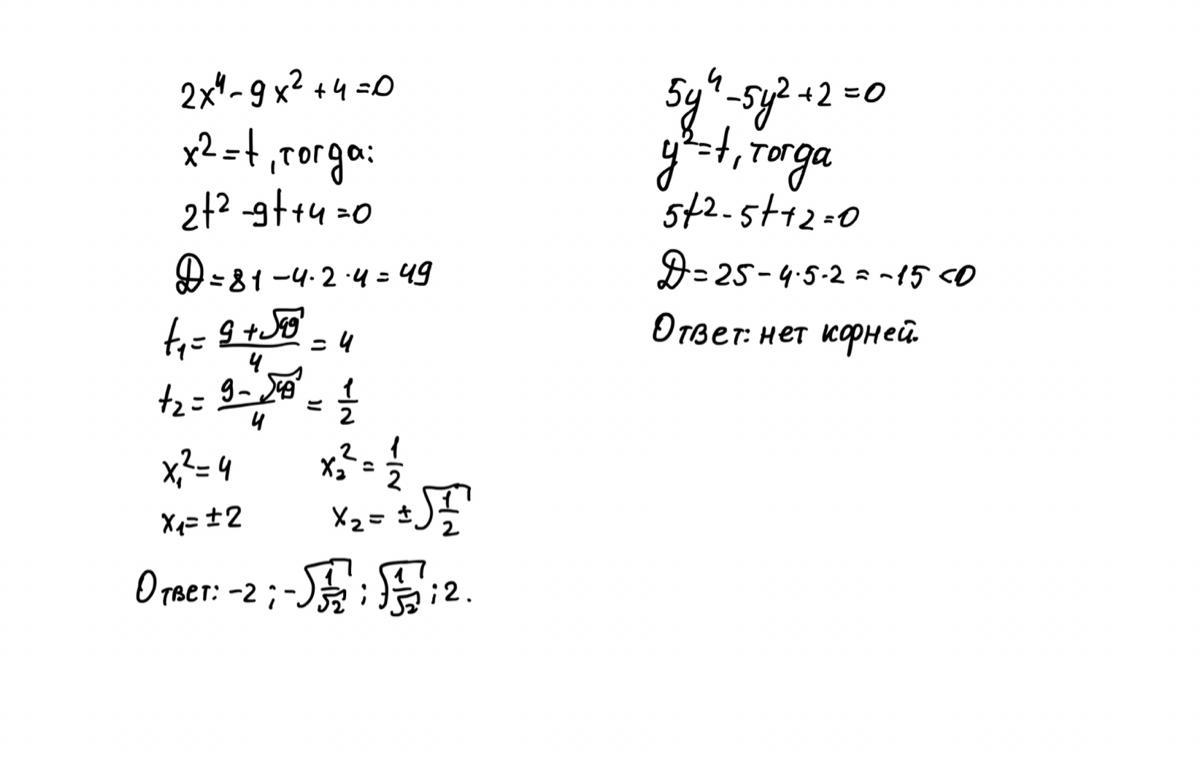 2x⁴ - 9x² + 4 = 0
x² = t, тогда:
2t² - 9t + 4 = 0
D = 81 - 4·2·4 = 49
t₁ = (9 + √49)/4 = 4
t₂ = (9 - √49)/4 = 1/2
x₁² = 4 x₂² = 1/2
x₁ = ±2 x₂ = ±√(1/2)
Ответ: -2; -√(1/√2); √(1/√2); 2.
5y⁴ - 5y² + 2 = 0
y² = t, тогда
5t² - 5t + 2 = 0
D = 25 - 4·5·2 = -15 < 0
Ответ: нет корней.